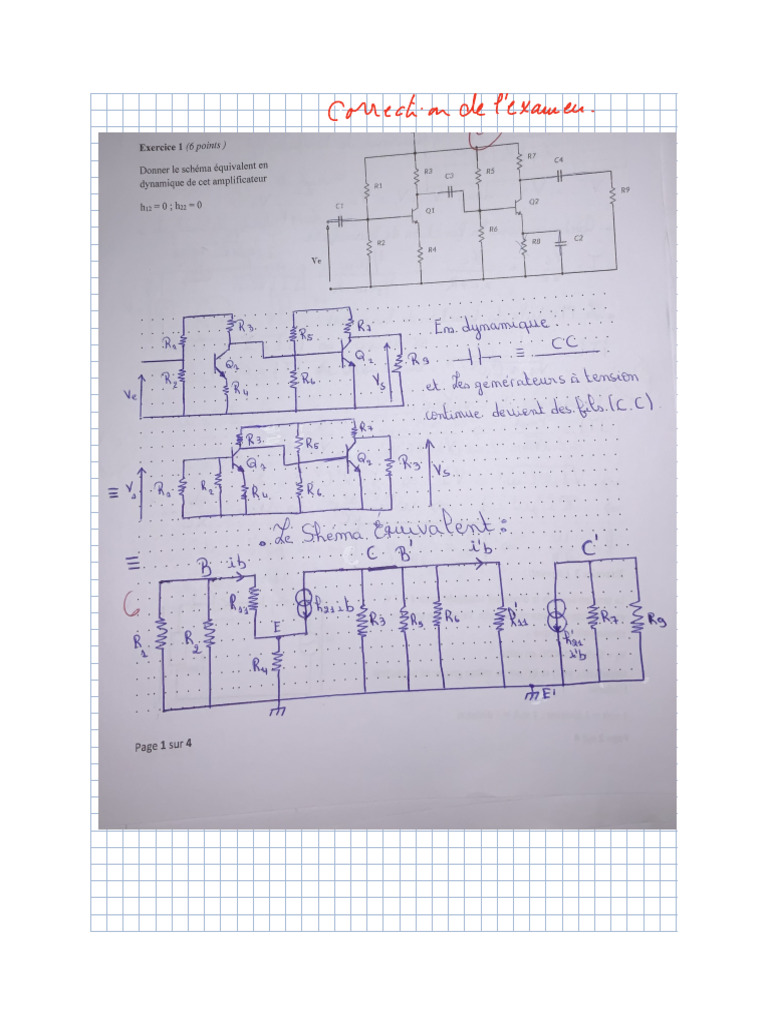 Correction de l'examen.
Exercice 1 (6 points)
Donner le schéma équivalent en
dynamique de cet amplificateur
h12 = 0 ; h22 = 0
R1 R3 C3 R5 R7 C4 R9
C1 Q1 Q2
R2 R4 R6 R8 C2
Ve
R3 R5 R7
Q2 R9
R4 R6 Vs
Ve
En dynamique
≡ CC
et les générateurs à tension
continue devient des fils (C.C)
≡ R3 R5 R7
R2 R4 R6 Q2 Vs
. Le Shéma Équivalent :
≡ B ib C B' i'b C'
R1 R2 R11 E R4 h21 ib R3 R5 R6 R'11 h'21 i'b R7 R9
E'
Page 1 sur 4